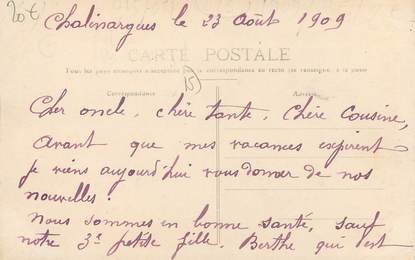 20 €
Chalinargues le 23 Août 1909
CARTE POSTALE
Tous les pays étrangers n'acceptent pas la correspondance au recto (se renseigner à la poste)
Correspondance
Adresse
15
Cher oncle, chère tante, Chère Cousine,
Avant que mes vacances expirent
je viens aujourd'hui vous donner de nos
nouvelles.
Nous sommes en bonne santé, sauf
notre 3e petite fille. Berthe qui est